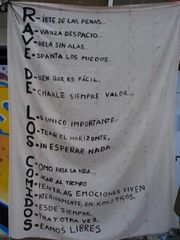 R-ÍETE DE LAS PENAS...
A-VANZA DESPACIO...
V-UELA SIN ALAS.
E-SPANTA LOS MIEDOS.
D-ICEN QUE ES FÁCIL.
E-CHARLE SIEMPRE VALOR...
L-O ÚNICO IMPORTANTE.
O-TEAR EL HORIZONTE,
S-IN ESPERAR NADA.
C-OMO PASA LA VIDA...
O-LVIDAR AL TIEMPO
M-IENTRAS EMOCIONES VIVEN
I-NTERIORMENTE, EN NOSOTROS.
D-ESDE SIEMPRE.
O-TRA Y OTRA VEZ.
S-EAMOS LIBRES